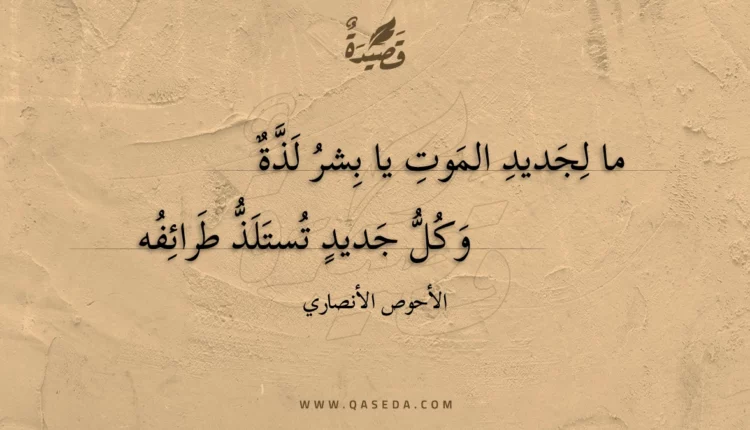 قَصِيدَةٌ
ما لِجَديدِ المَوتِ يا بِشرُ لَذَّةٌ
وَكُلُّ جَديدٍ تُستَلَذُّ طَرائِفُه
الأحوص الأنصاري
WWW.QASEDA.COM